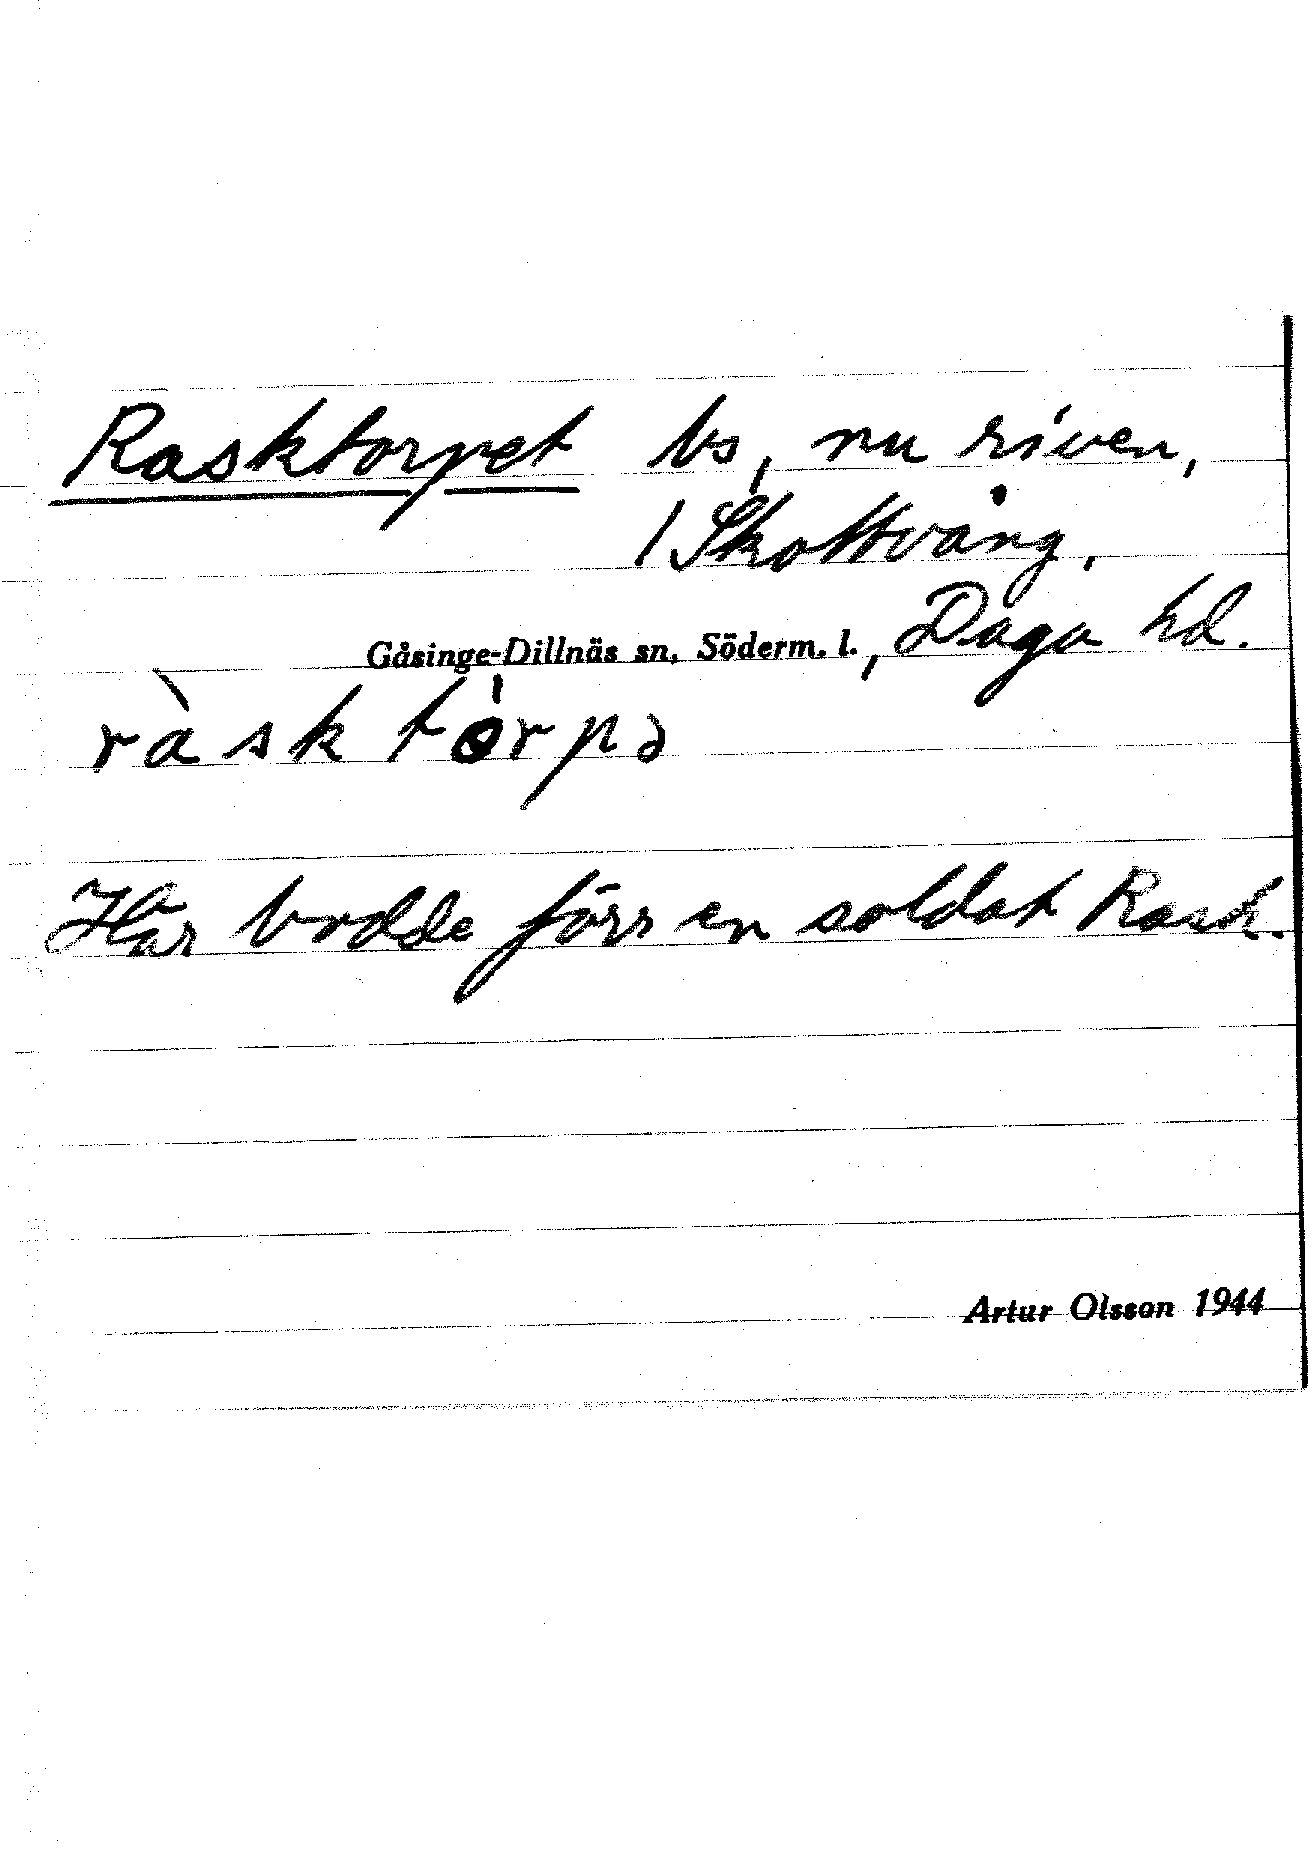 Rasktorpet bs, nu riven,
/ Skottvång,
Gåsinge-Dillnäs sn, Söderm. l., Daga hd.
ràsktòrpə
Här bodde förr en soldat Rask.
Artur Olsson 1944